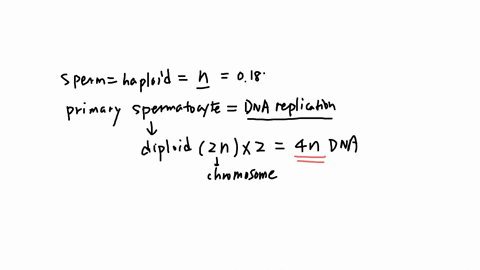 sperm = haploid = n = 0.18.
primary spermatocyte = DNA replication
diploid (2n) x 2 = 4n DNA
chromosome